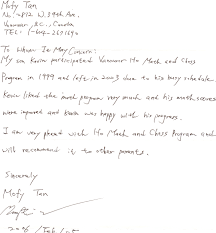 Mofy Tan
No. 1-812 W. 39th Ave.
Vancouver, B.C., Canada
TEL:
To Whom It May Concern:
My son Kevin participated Vancouver Ho Math and Chess
Program in 1999 and left in 2003 due to his busy schedule.
Kevin liked the math program very much and his math scores
were improved and Kevin was happy with his progress.
I am very pleased with Ho Math and Chess Program and
will recommend it to other parents.
Sincerely
Mofy Tan